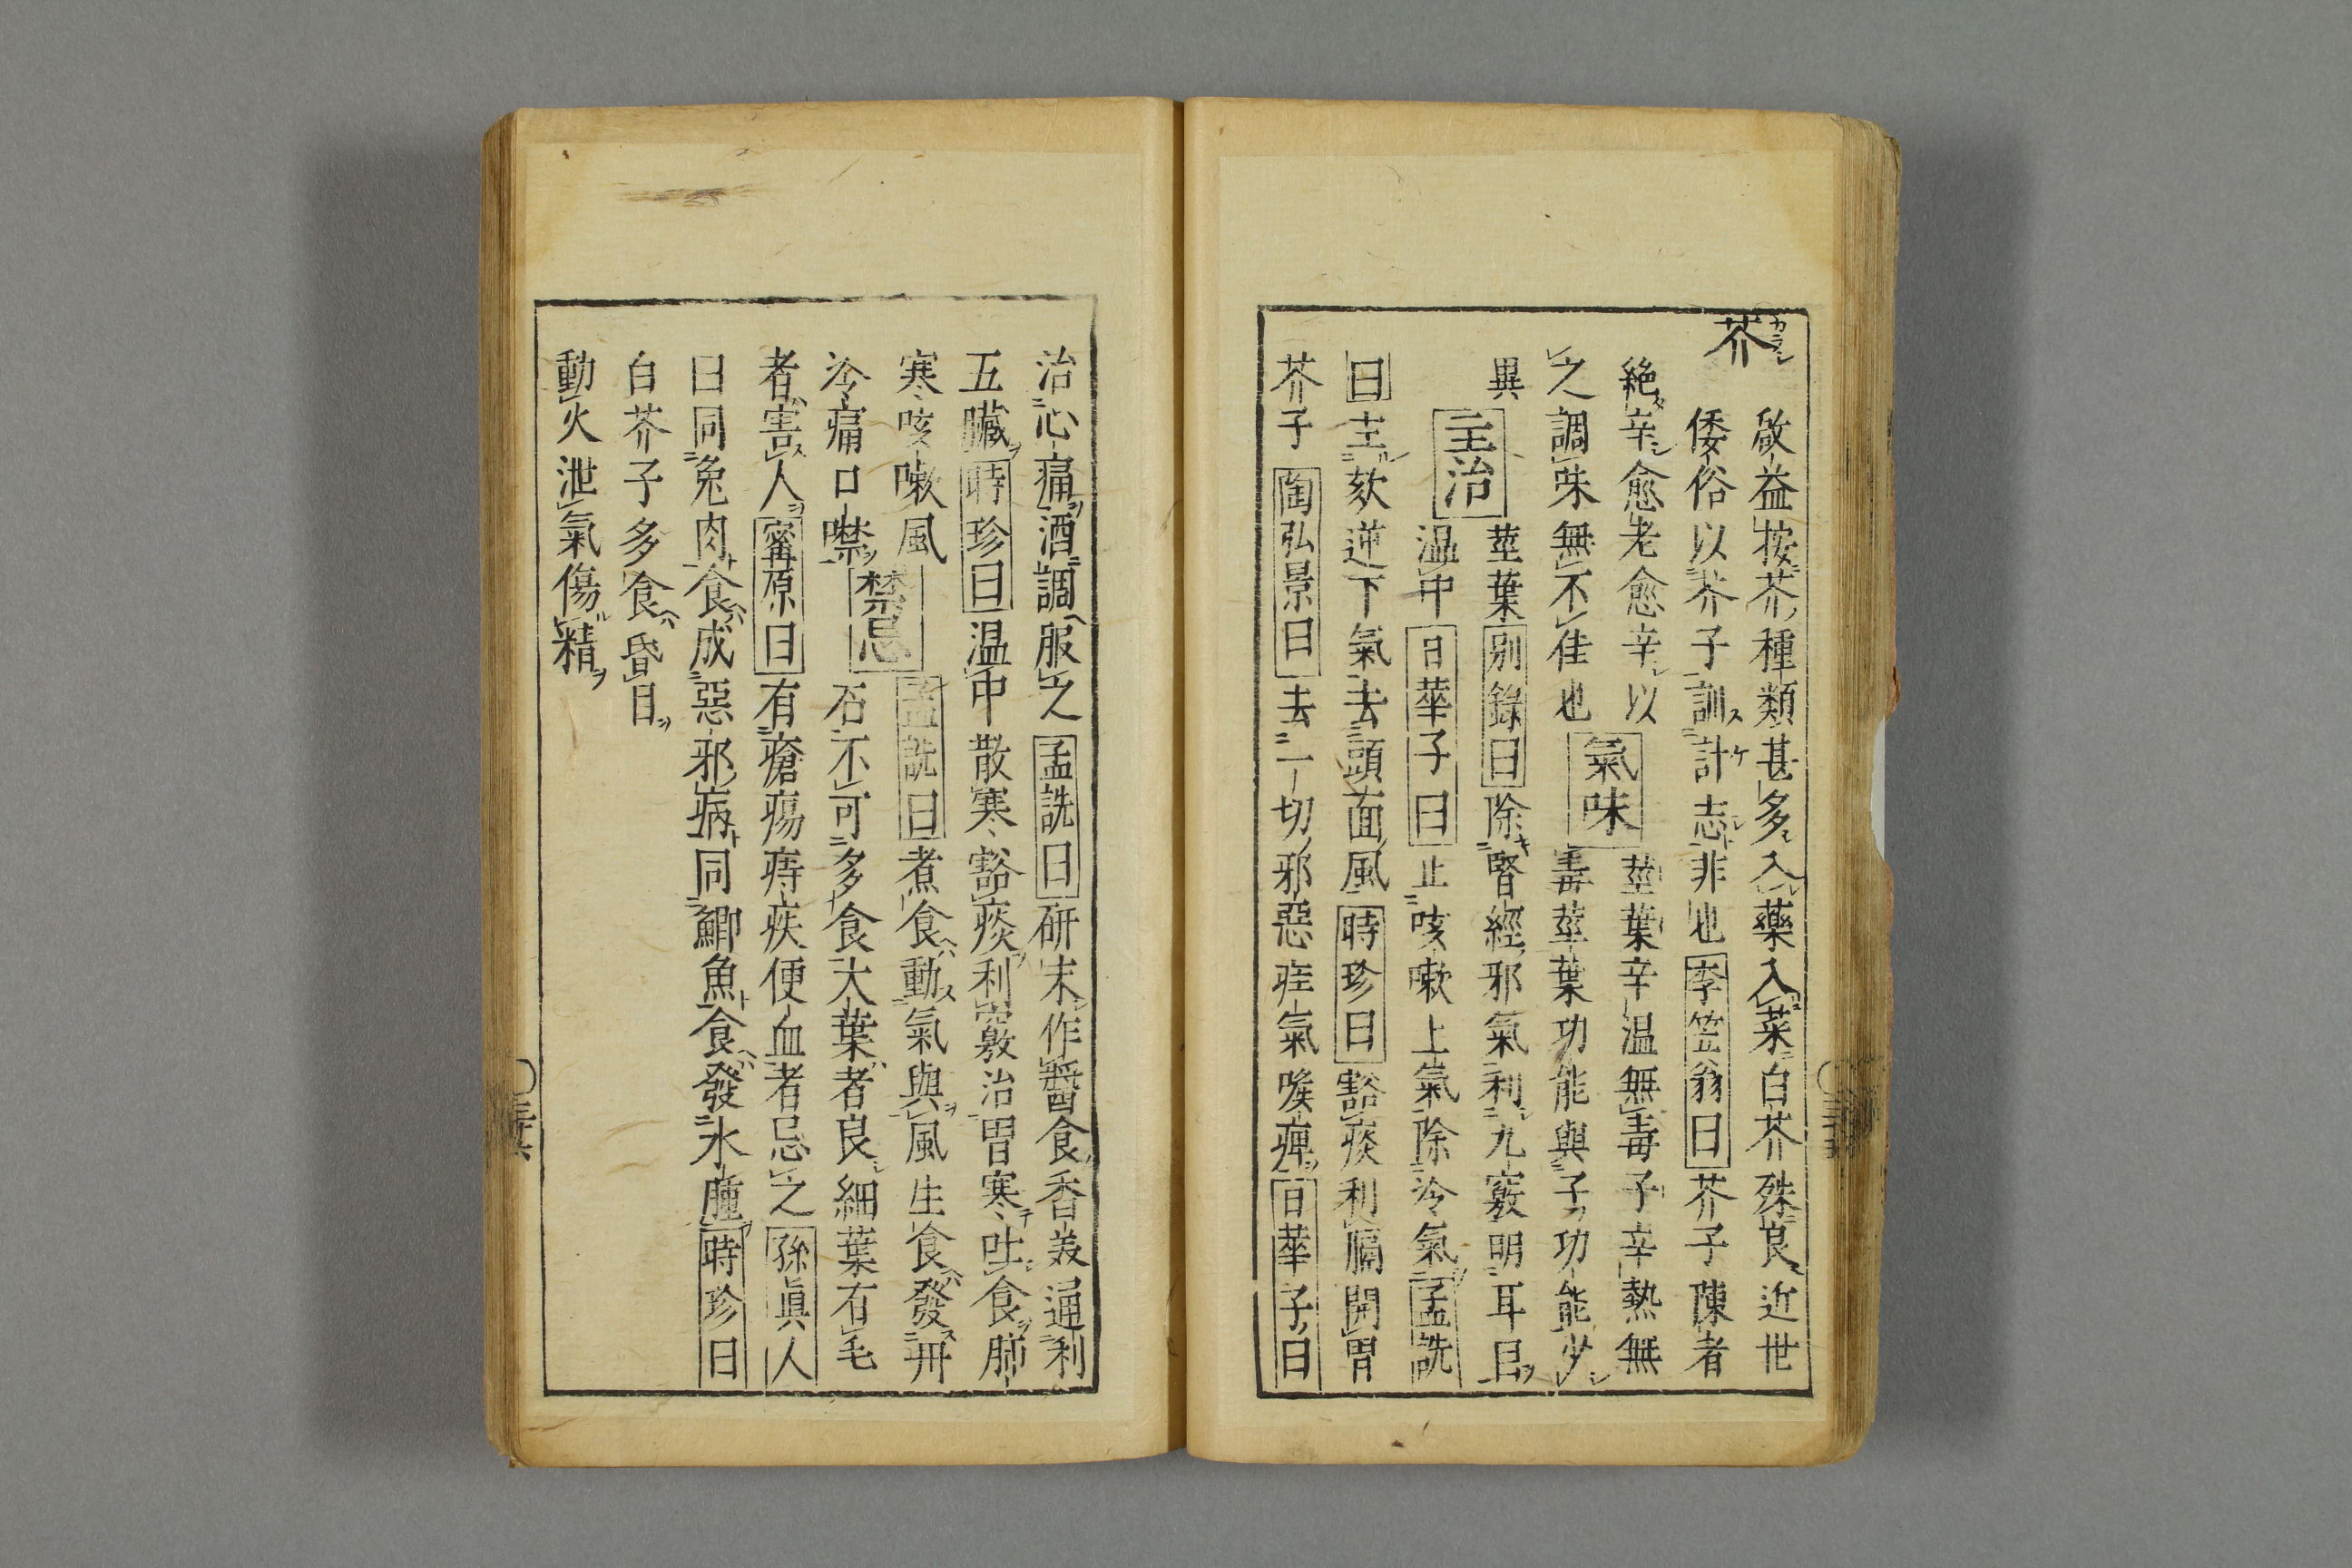 芥
啟益按芥種類甚多入藥入菜白芥殊良近世
倭俗以芥子訓計志非也李笠翁曰芥子陳者
絶辛愈老愈辛以
之調味無不佳也
氣味
莖葉辛温無毒子辛熱無
毒莖葉功能與子功能少
異
主治
莖葉別錄曰除腎經邪氣利九竅明耳目
温中日華子曰止咳嗽上氣除冷氣孟詵
曰主欬逆下氣去頭面風時珍曰豁痰利膈開胃
芥子陶弘景曰去一切邪惡疰氣喉痺日華子曰
治心痛酒調服之孟詵曰研末作醬食香美通利
五臟時珍曰温中散寒豁痰利竅治胃寒吐食肺
寒咳嗽風
冷痛口噤
禁忌
孟詵曰煮食動氣與風生食發丹
石不可多食大葉者良細葉有毛
者害人寗原曰有瘡瘍痔疾便血者忌之孫眞人
曰同兔肉食成惡邪病同鯽魚食發水腫時珍曰
白芥子多食昏目
動火泄氣傷精